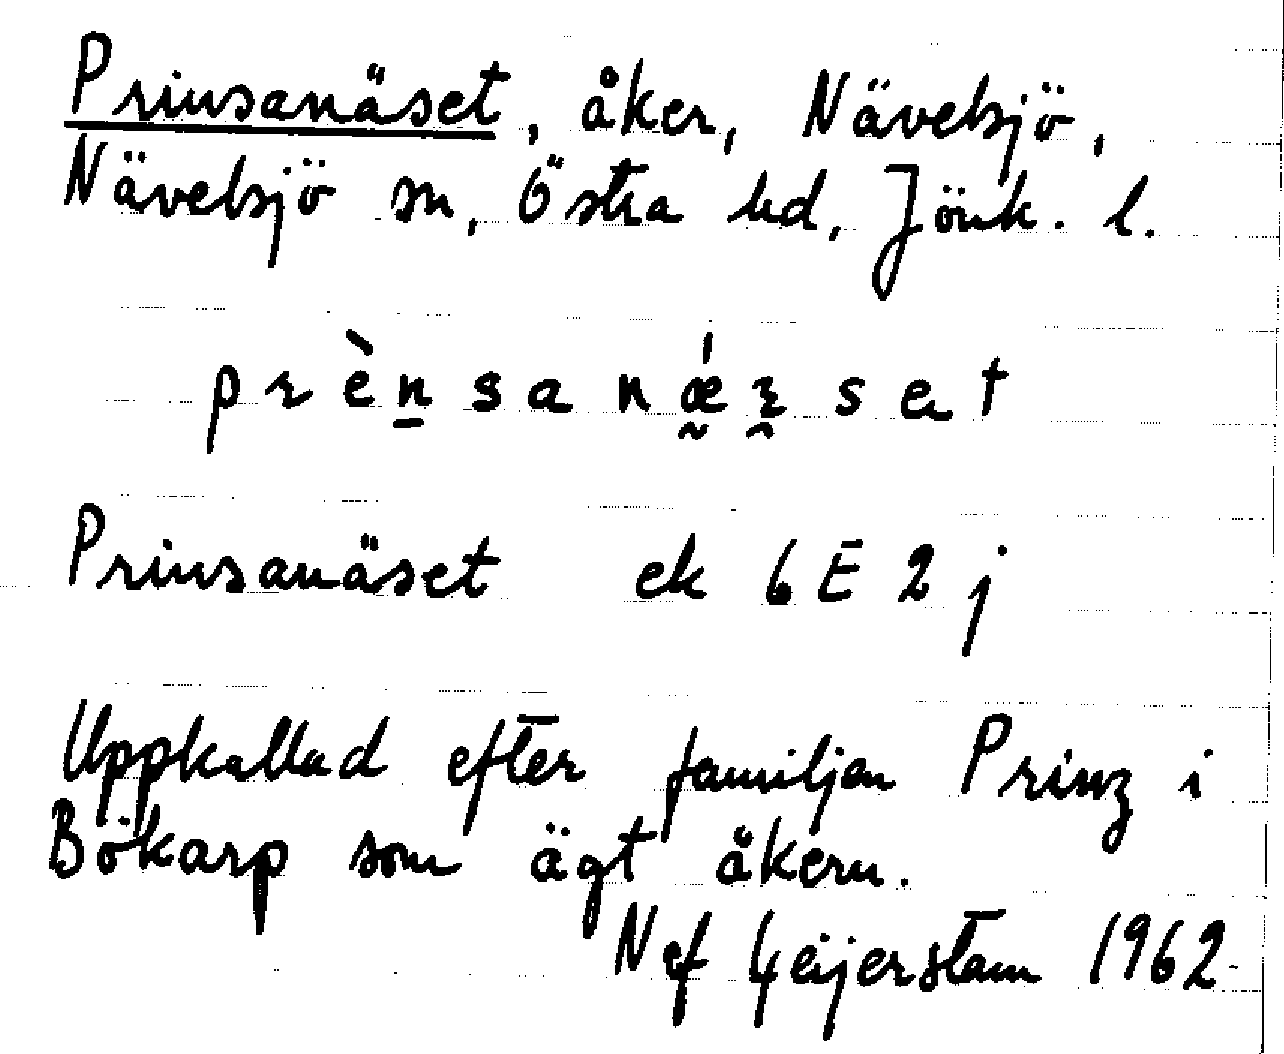 Prinsanäset, åker, Nävelsjö,
Nävelsjö sn, Östra hd, Jönk. l.
prènsanǽꝛset
Prinsanäset ek 6E2j
Uppkallad efter familjen Prinz i
Bökarp som ägt åkern.
N af Geijerstam 1962